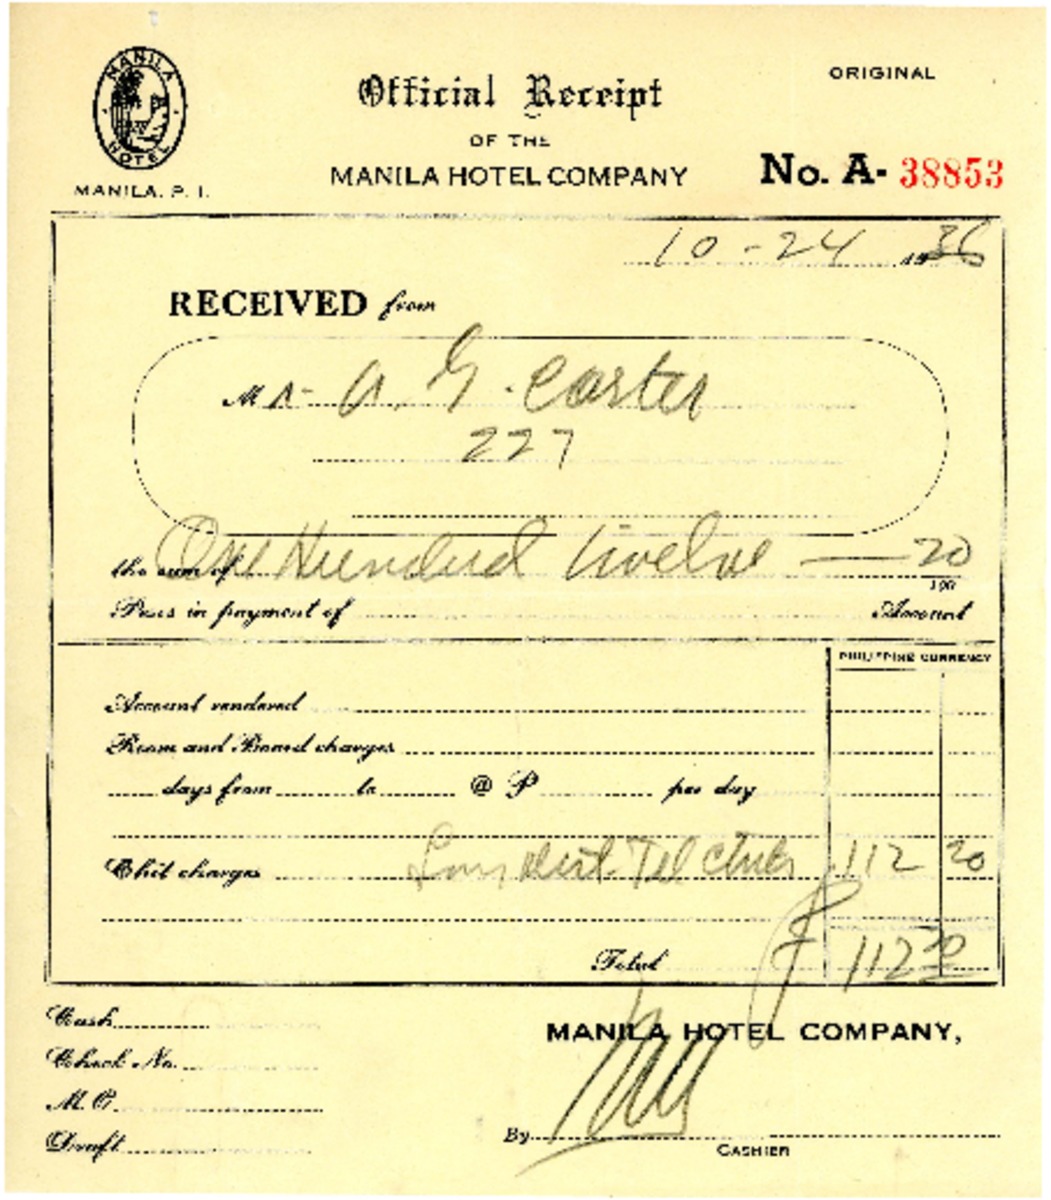 MANILA HOTEL
MANILA, P. I.
Official Receipt
OF THE
MANILA HOTEL COMPANY
ORIGINAL
No. A- 38853
10-24 1936
RECEIVED from
Mr- A. G. Carter
227
the sum of One Hundred twelve — 20/100
Pesos in payment of Account
PHILIPPINE CURRENCY
Account rendered
Room and Board charges
days from to @ P per day
Chit charges Long Dist. Tel 112 20
Total ₱ 112 20
Cash
Check No.
M. O.
Draft
MANILA HOTEL COMPANY,
By
CASHIER